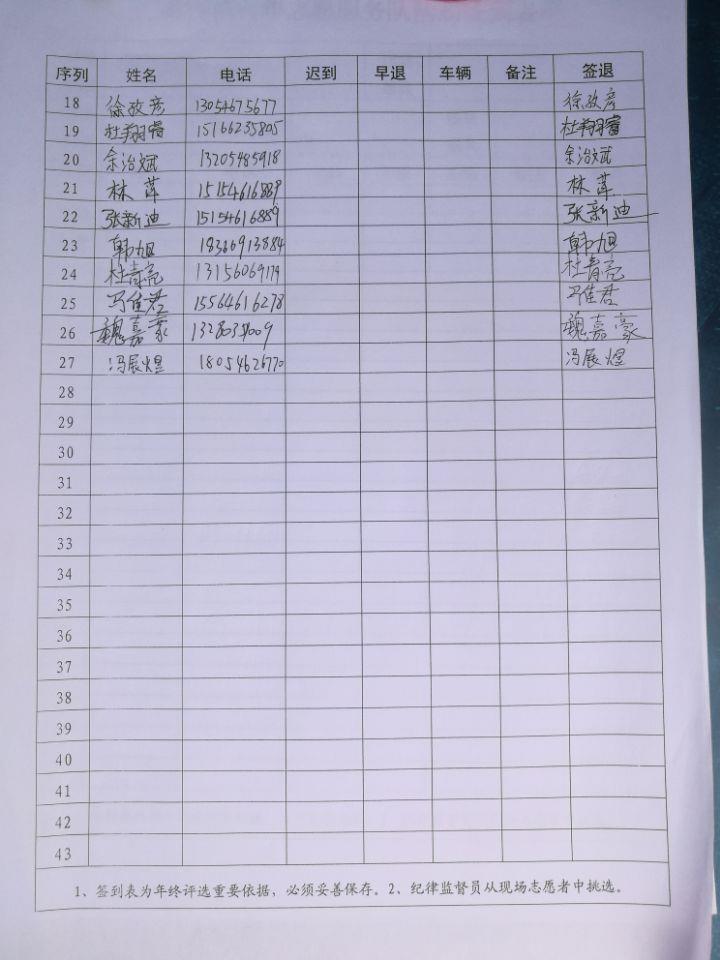 序列 姓名 电话 迟到 早退 车辆 备注 签退
18 徐政彦 13054675677 徐政彦
19 杜翔睿 15166235805 杜翔睿
20 余治斌 13205485918 余治斌
21 林萍 15154616889 林萍
22 张新迪 15154616889 张新迪
23 韩旭 18366913884 韩旭
24 杜青亮 13156069179 杜青亮
25 冯佳君 15564616278 冯佳君
26 魏嘉豪 魏嘉豪
27 冯展煜 18054626770 冯展煜
28
29
30
31
32
33
34
35
36
37
38
39
40
41
42
43
1、签到表为年终评选重要依据，必须妥善保存。2、纪律监督员从现场志愿者中挑选。